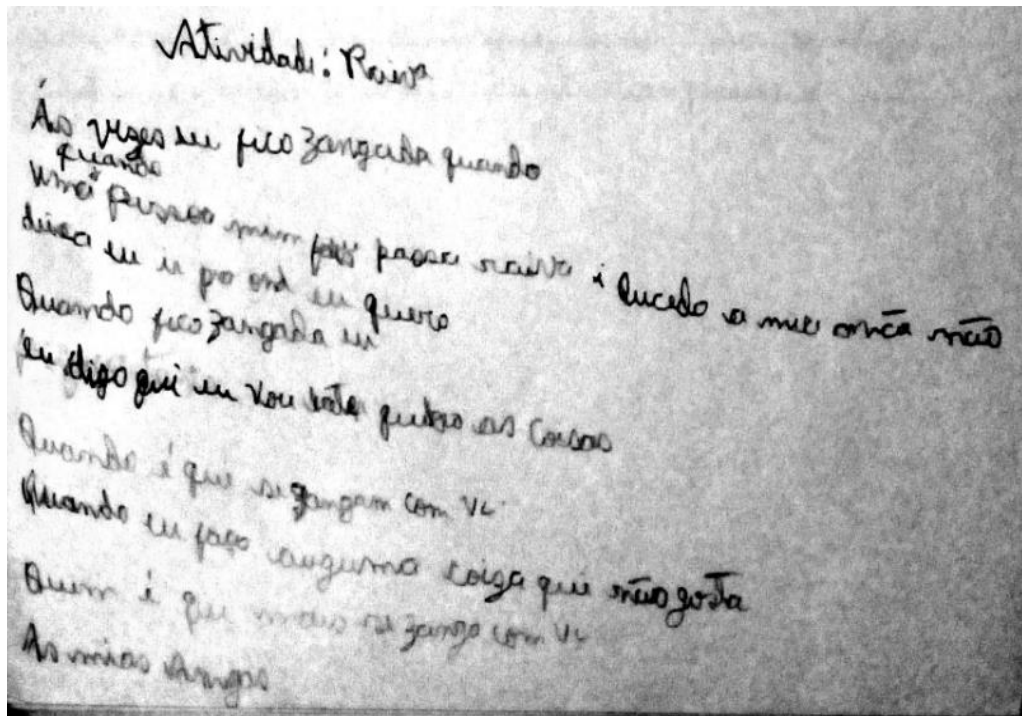 Atividade: Raiva
Ás vezes eu fico zangada quando
quando
uma pessoa mim faz passa raiva i Quando a mia mãe não
deixa eu ir po ond eu quero
Quando fico zangada eu
eu digo qui eu vou bata quebra as coisas
Quando é que se zangam com vc
Quando eu faço auguma coiza qui não gosta
Quem é que mais se zanga com vc
As mias amigas